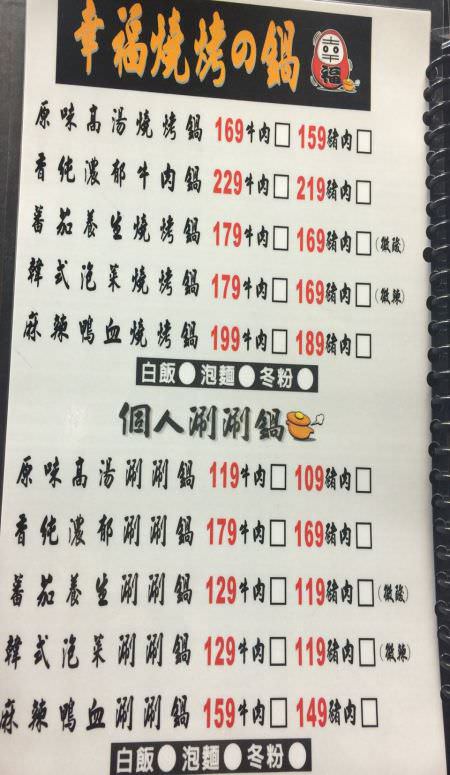 幸福燒烤の鍋 幸福
原味高湯燒烤鍋 169牛肉□ 159豬肉□
香純濃郁牛肉鍋 229牛肉□ 219豬肉□
蕃茄養生燒烤鍋 179牛肉□ 169豬肉□(微酸)
韓式泡菜燒烤鍋 179牛肉□ 169豬肉□(微辣)
麻辣鴨血燒烤鍋 199牛肉□ 189豬肉□
白飯● 泡麵● 冬粉●
個人涮涮鍋
原味高湯涮涮鍋 119牛肉□ 109豬肉□
香純濃郁涮涮鍋 179牛肉□ 169豬肉□
蕃茄養生涮涮鍋 129牛肉□ 119豬肉□(微酸)
韓式泡菜涮涮鍋 129牛肉□ 119豬肉□(微辣)
麻辣鴨血涮涮鍋 159牛肉□ 149豬肉□
白飯● 泡麵● 冬粉●